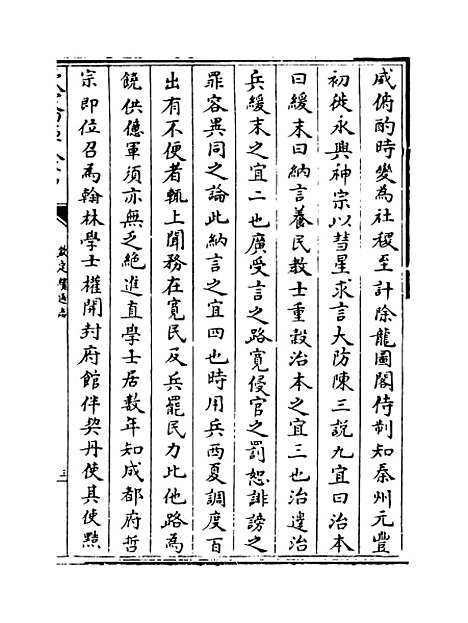 咸俯酌時變為社稷至計除龍圖閣待制知秦州元豐
初徙永興神宗以彗星求言大防陳三說九宜曰治本
曰緩末曰納言養民教士重穀治本之宜三也治邊治
兵緩末之宜二也廣受言之路寬侵官之罰恕誹謗之
罪容異同之論此納言之宜四也時用兵西夏調度百
出有不便者輒上聞務在寬民及兵罷民力比他路為
饒供億軍須亦無乏絶進直學士居數年知成都府哲
宗即位召為翰林學士權開封府館伴契丹使其使黠
欽定續通志